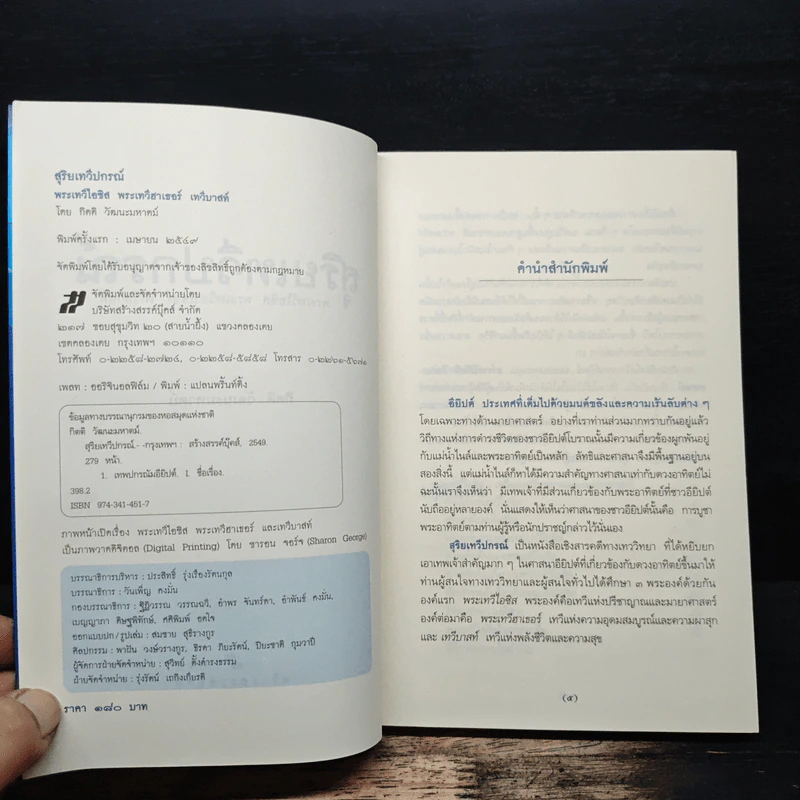 สุริยเทวีปกรณ์
พระเทวีไอซิส พระเทวีฮาเธอร์ เทวีบาสท์
โดย กิตติ วัฒนะมหาตม์
พิมพ์ครั้งแรก : เมษายน ๒๕๔๙
จัดพิมพ์โดยได้รับอนุญาตจากเจ้าของลิขสิทธิ์ถูกต้องตามกฎหมาย
จัดพิมพ์และจัดจำหน่ายโดย
บริษัทสร้างสรรค์บุ๊คส์ จำกัด
๒๑๗ ซอยสุขุมวิท ๒๐ (สายน้ำผึ้ง) แขวงคลองเตย
เขตคลองเตย กรุงเทพฯ ๑๐๑๑๐
โทรศัพท์ ๐-๒๒๕๘-๒๗๒๔, ๐-๒๒๕๘-๕๘๕๘ โทรสาร ๐-๒๒๖๑-๕๖๗๑
เพลท : ออริจินอลฟิล์ม / พิมพ์ : แปลนพริ้นท์ติ้ง
ข้อมูลทางบรรณานุกรมของหอสมุดแห่งชาติ
กิตติ วัฒนะมหาตม์.
สุริยเทวีปกรณ์.- -กรุงเทพฯ : สร้างสรรค์บุ๊คส์, 2549.
279 หน้า.
1. เทพปกรณัมอียิปต์. I. ชื่อเรื่อง.
398.2
ISBN 974-341-451-7
ภาพหน้าเปิดเรื่อง พระเทวีไอซิส พระเทวีฮาเธอร์ และเทวีบาสท์
เป็นภาพวาดดิจิตอล (Digital Printing) โดย ชารอน จอร์จ (Sharon George)
บรรณาธิการบริหาร : ประสิทธิ์ รุ่งเรืองรัตนกุล
บรรณาธิการ : วันเพ็ญ คงมั่น
กองบรรณาธิการ : ฐิฏิวรรณ วรรณฉวี, อำพร จันทร์ดา, อำพันธ์ คงมั่น,
เบญญาภา ดิษฐพิทักษ์, ศศิพิมพ์ อดใจ
ออกแบบปก/รูปเล่ม : สมชาย สุธีรางกูร
ศิลปกรรม : พาฝัน วงษ์วรางกูร, ธิรดา ภิยะรัตน์, ปิยะชาติ กุมวาปี
ผู้จัดการฝ่ายจัดจำหน่าย : สุวิทย์ ตั้งดำรงธรรม
ฝ่ายจัดจำหน่าย : รุ่งรัตน์ เถกิงเกียรติ
ราคา ๑๘๐ บาท
คำนำสำนักพิมพ์
อียิปต์ ประเทศที่เต็มไปด้วยมนต์ขลังและความเร้นลับต่าง ๆ
โดยเฉพาะทางด้านมายาศาสตร์ อย่างที่เราท่านส่วนมากทราบกันอยู่แล้ว
วิถีทางแห่งการดำรงชีวิตของชาวอียิปต์โบราณนั้นมีความเกี่ยวข้องผูกพันอยู่
กับแม่น้ำไนล์และพระอาทิตย์เป็นหลัก ลัทธิและศาสนาจึงมีพื้นฐานอยู่บน
สองสิ่งนี้ แต่แม่น้ำไนล์ก็หาได้มีความสำคัญทางศาสนาเท่ากับดวงอาทิตย์ไม่
ฉะนั้นเราจึงเห็นว่า มีเทพเจ้าที่มีส่วนเกี่ยวข้องกับพระอาทิตย์ที่ชาวอียิปต์
นับถืออยู่หลายองค์ นั่นแสดงให้เห็นว่าศาสนาของชาวอียิปต์นั้นคือ การบูชา
พระอาทิตย์ตามท่านผู้รู้หรือนักปราชญ์กล่าวไว้นั่นเอง
สุริยเทวีปกรณ์ เป็นหนังสือเชิงสารคดีทางเทววิทยา ที่ได้หยิบยก
เอาเทพเจ้าสำคัญมาก ๆ ในศาสนาอียิปต์ที่เกี่ยวข้องกับดวงอาทิตย์ขึ้นมาให้
ท่านผู้สนใจทางเทววิทยาและผู้สนใจทั่วไปได้ศึกษา ๓ พระองค์ด้วยกัน
องค์แรก พระเทวีไอซิส พระองค์คือเทวีแห่งปรีชาญาณและมายาศาสตร์
องค์ต่อมาคือ พระเทวีฮาเธอร์ เทวีแห่งความอุดมสมบูรณ์และความผาสุก
และ เทวีบาสท์ เทวีแห่งพลังชีวิตและความสุข
(๕)